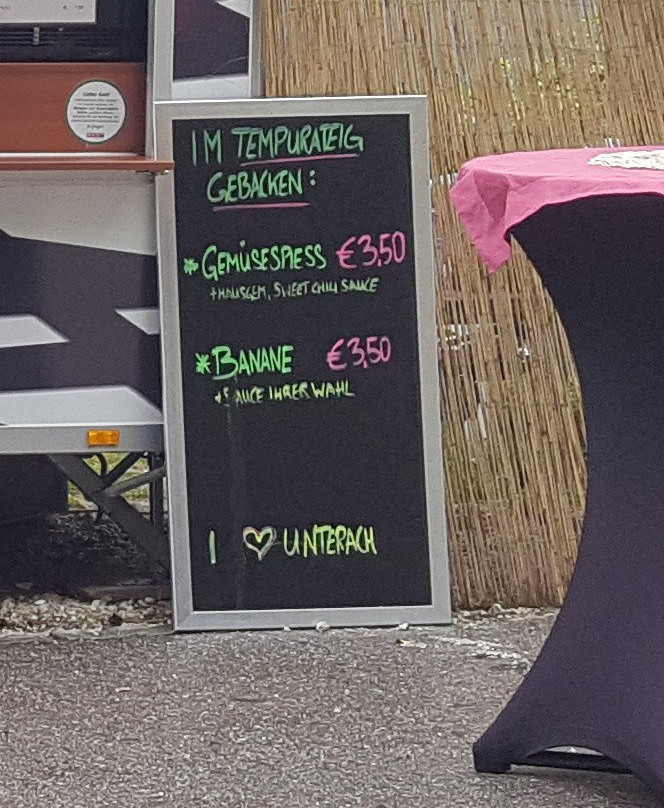 IM TEMPURATEIG
GEBACKEN:
* GEMÜSESPIESS €3,50
+ HAUSGEM. SWEET CHILI SAUCE
* BANANE €3,50
+ SAUCE IHRER WAHL
I ♡ UNTERACH